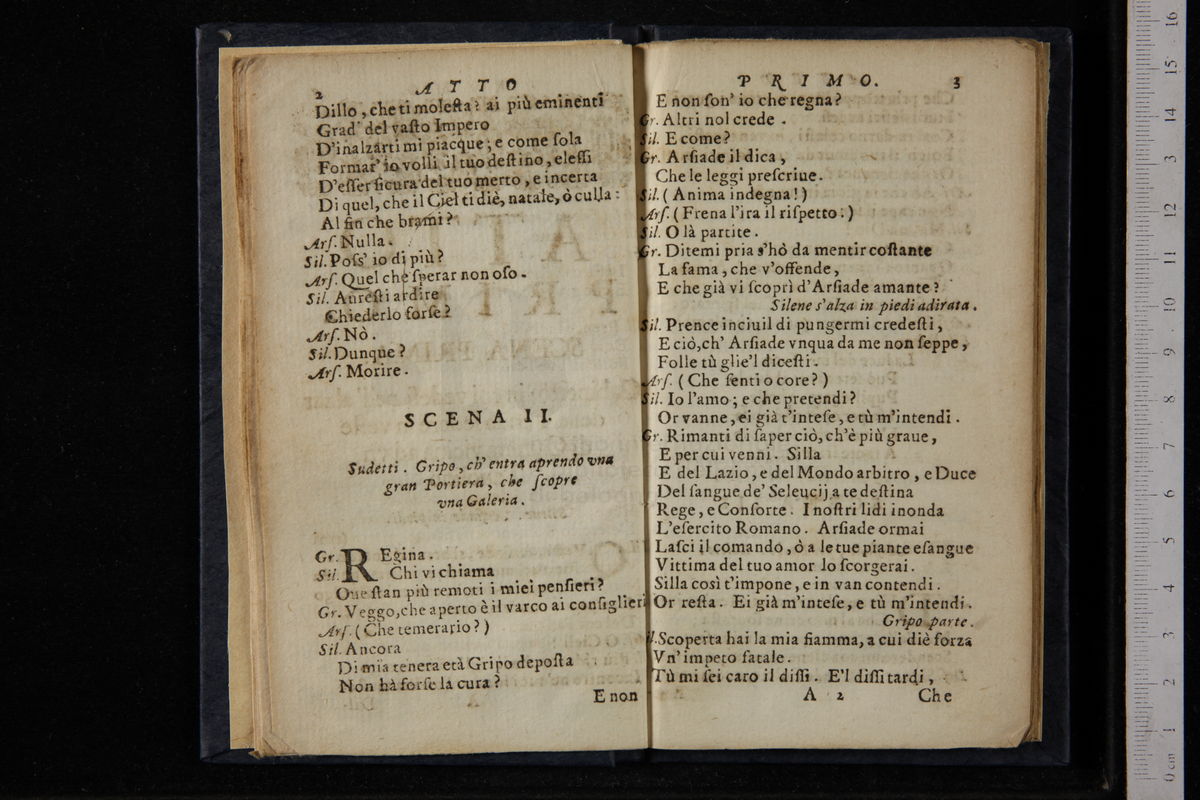 2 ATTO
Dillo, che ti molesta? ai più eminenti
Grad' del vasto Impero
D'inalzarti mi piacque; e come sola
Formar' io volli il tuo destino, elessi
D'esser sicura del tuo merto, e incerta
Di quel, che il Ciel ti diè, natale, ò culla:
Al fin che brami?
Ars. Nulla.
Sil. Poss' io di più?
Ars. Quel che sperar non oso.
Sil. Auresti ardire
Chiederlo forse?
Ars. Nò.
Sil. Dunque?
Ars. Morire.
SCENA II.
Sudetti. Gripo, ch' entra aprendo vna
gran Portiera, che scopre
vna Galeria.
Gr. REgina.
Sil. Chi vi chiama
Oue stan più remoti i miei pensieri?
Gr. Veggo, che aperto è il varco ai consiglieri
Ars. (Che temerario?)
Sil. Ancora
Di mia tenera età Gripo deposta
Non hà forse la cura?
E non
PRIMO. 3
E non son' io che regna?
Gr. Altri nol crede.
Sil. E come?
Gr. Arsiade il dica,
Che le leggi prescriue.
Sil. (Anima indegna!)
Ars. (Frena l'ira il rispetto:)
Sil. O là partite.
Gr. Ditemi pria s'hò da mentir costante
La fama, che v'offende,
E che già vi scoprì d'Arsiade amante?
Silene s'alza in piedi adirata.
Sil. Prence inciuil di pungermi credesti,
E ciò, ch' Arsiade vnqua da me non seppe,
Folle tù glie'l dicesti.
Ars. (Che senti o core?)
Sil. Io l'amo; e che pretendi?
Or vanne, ei già t'intese, e tù m'intendi.
Gr. Rimanti di saper ciò, ch'è più graue,
E per cui venni. Silla
E del Lazio, e del Mondo arbitro, e Duce
Del sangue de' Seleucij a te destina
Rege, e Consorte. I nostri lidi inonda
L'esercito Romano. Arsiade ormai
Lasci il comando, ò a le tue piante esangue
Vittima del tuo amor lo scorgerai.
Silla così t'impone, e in van contendi.
Or resta. Ei già m'intese, e tù m'intendi.
Gripo parte.
l. Scoperta hai la mia fiamma, a cui diè forza
Vn' impeto fatale.
Tù mi sei caro il dissi. E'l dissi tardi,
A 2 Che
0 cm 1 2 3 4 5 6 7 8 9 10 11 12 13 14 15 16